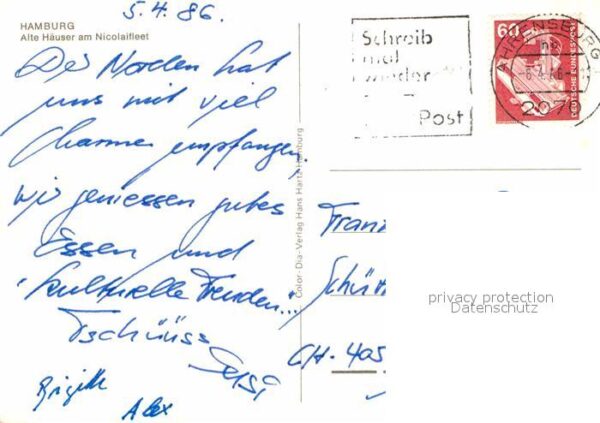 HAMBURG
Alte Häuser am Nicolaifleet
5.4.86.
Der Norden hat
uns mit viel
Charme empfangen,
wir geniessen gutes
Essen und
"kulturelle Freuden"...
Tschüüss
Brigitte
Alex
Color-Dia-Verlag Hans Hartz Hamburg
Schreib
mal
wieder
Post
60
DEUTSCHE BUNDESPOST
AHRENSBURG
2070
Franz
CH-405
privacy protection
Datenschutz